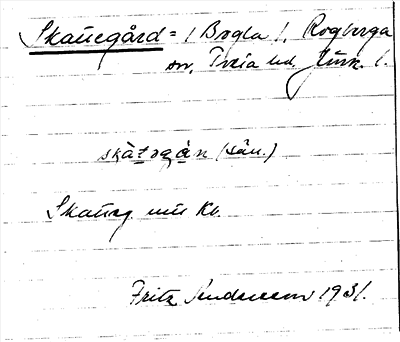 Skattegård = / Bogla /, Rogberga
sn, Tveta hd, Jönk. l.
skàtəgą̀n (sån.)
Skatteg. mtl Kb.
Fritz Andersson 1931.